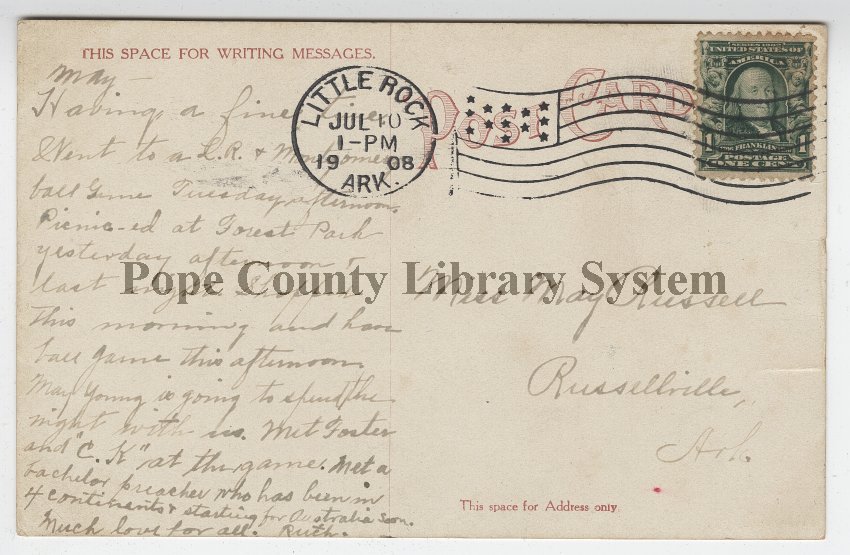 THIS SPACE FOR WRITING MESSAGES.
POST CARD
LITTLE ROCK
JUL 10
1-PM
1908
ARK.
SERIES 1902
UNITED STATES OF
AMERICA
FRANKLIN
POSTAGE
ONE CENT
May –
Having a fine time
Went to a L.R. & Montgomery
ball game Tuesday afternoon.
Picnic-ed at Forest Park
yesterday afternoon &
last night.
this morning and have
ball game this afternoon.
May Young is going to spend the
night with us. Met Foster
and "C. K" at the game. Met a
bachelor preacher who has been in
4 continents & starting for Australia soon.
Much love for all. Ruth.
Pope County Library System
Miss May Russell
Russellville,
Ark.
This space for Address only.